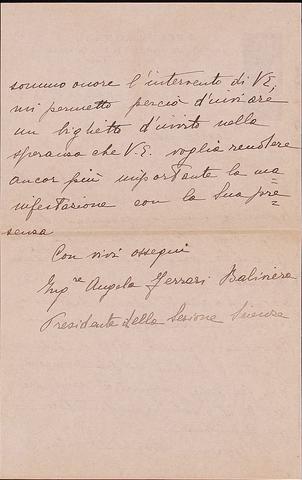 sommo onore l'intervento di V.E,
mi permetto perciò d'inviare
un biglietto d'invito nella
speranza che V.E. voglia rendere
ancor più importante la ma=
nifestazione con la Sua pre=
senza
Con vivi ossequi
Ing.re Angelo Ferrari
Presidente della Sezione Scienze